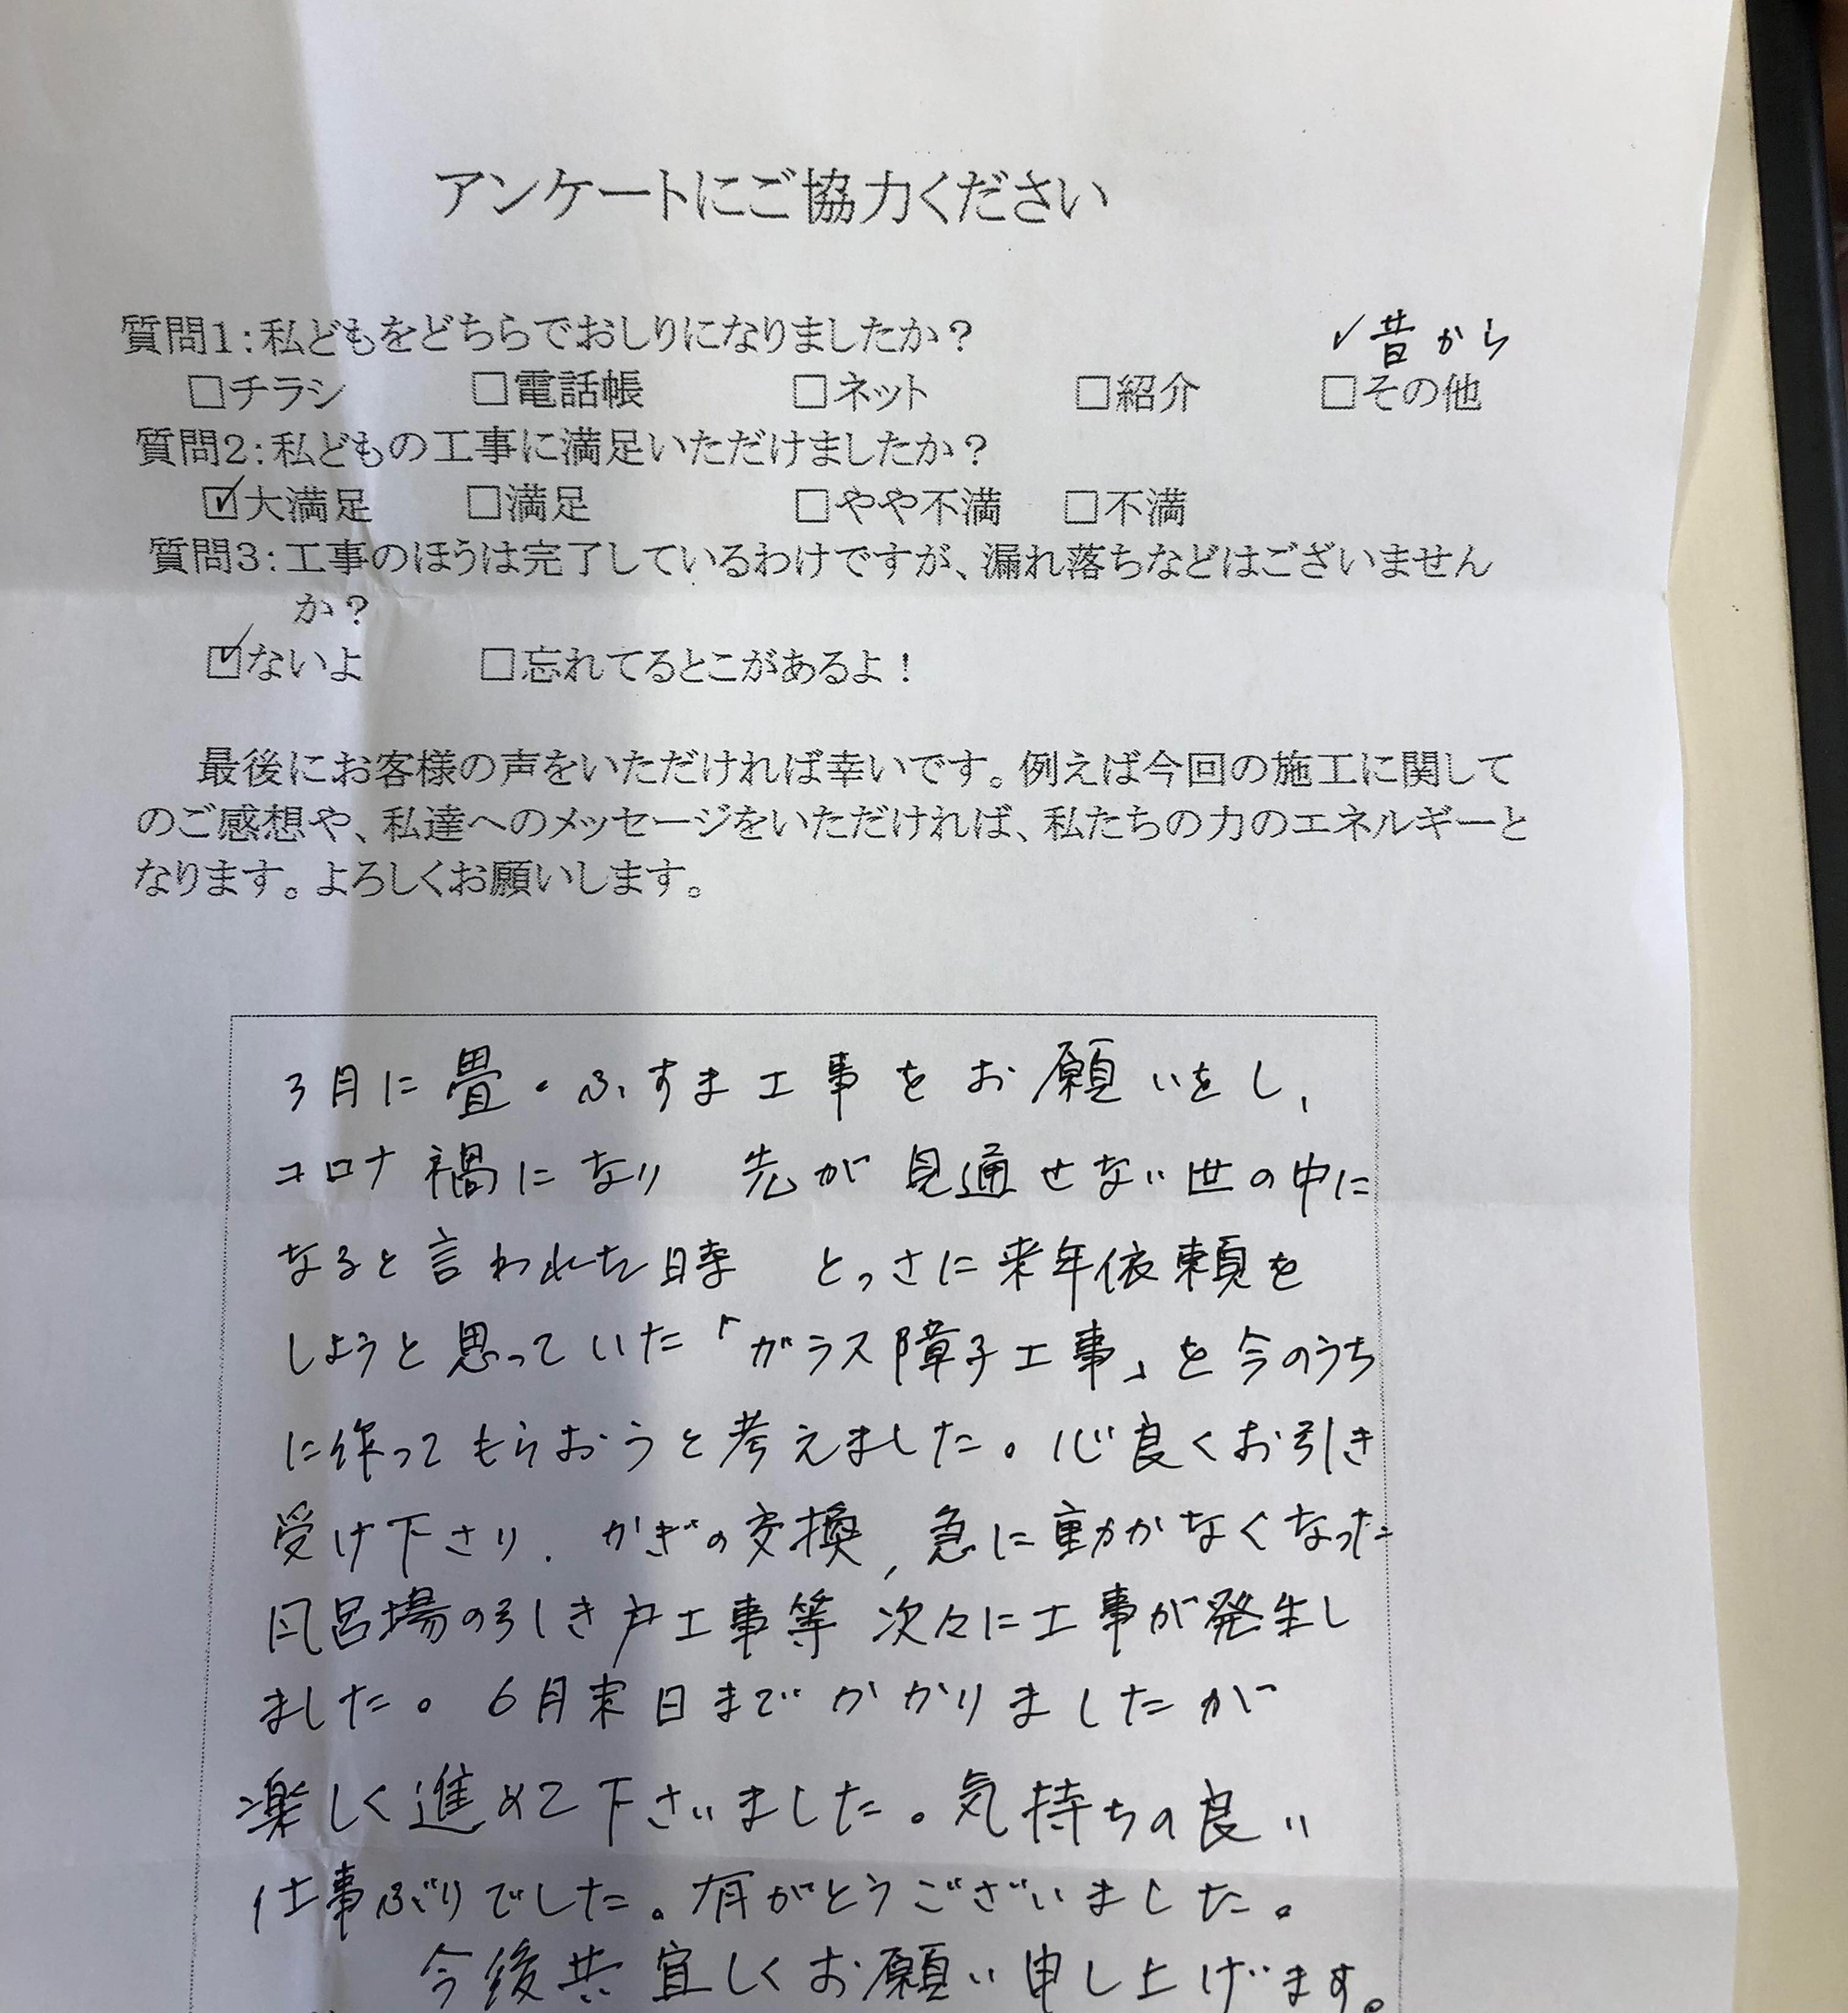 アンケートにご協力ください
質問1:私どもをどちらでおしりになりましたか?
✓昔から
□チラシ □電話帳 □ネット □紹介 □その他
質問2:私どもの工事に満足いただけましたか?
☑大満足 □満足 □やや不満 □不満
質問3:工事のほうは完了しているわけですが、漏れ落ちなどはございません
か?
☑ないよ □忘れてるとこがあるよ!
最後にお客様の声をいただければ幸いです。例えば今回の施工に関して
のご感想や、私達へのメッセージをいただければ、私たちの力のエネルギーと
なります。よろしくお願いします。
3月に畳・ふすま工事をお願いをし、
コロナ禍になり 先が見通せない世の中に
なると言われた時 とっさに来年依頼を
しようと思っていた「ガラス障子工事」を今のうち
に作ってもらおうと考えました。心良くお引き
受け下さり、かぎの交換、急に動かなくなった
風呂場の引しき戸工事等 次々に工事が発生し
ました。6月末日までかかりましたが
楽しく進めて下さいました。気持ちの良い
仕事ぶりでした。有がとうございました。
今後共宜しくお願い申し上げます。